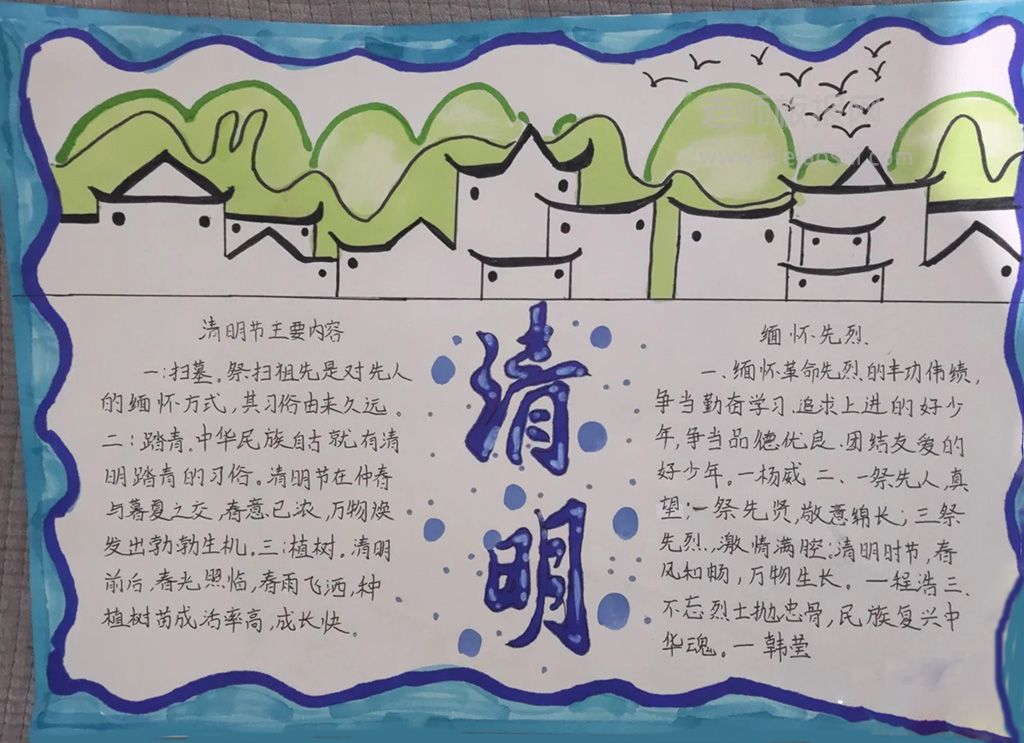 老师板报网
清明节主要内容
一:扫墓。祭扫祖先是对先人
的缅怀方式，其习俗由来久远。
二:踏青。中华民族自古就有清
明踏青的习俗。清明节在仲春
与暮夏之交，春意已浓，万物焕
发出勃勃生机。三:植树。清明
前后，春光照临，春雨飞洒，种
植树苗成活率高，成长快。
清
明
缅怀先烈.
一、缅怀革命先烈的丰功伟绩，
争当勤奋学习.追求上进的好少
年，争当品德优良.团结友爱的
好少年。一杨威 二、一祭先人，真
望;一祭先贤，敬意绵长;三祭
先烈，激情满腔;清明时节，春
风和畅，万物生长。一程浩三、
不忘烈士抛忠骨，民族复兴中
华魂。一韩莹